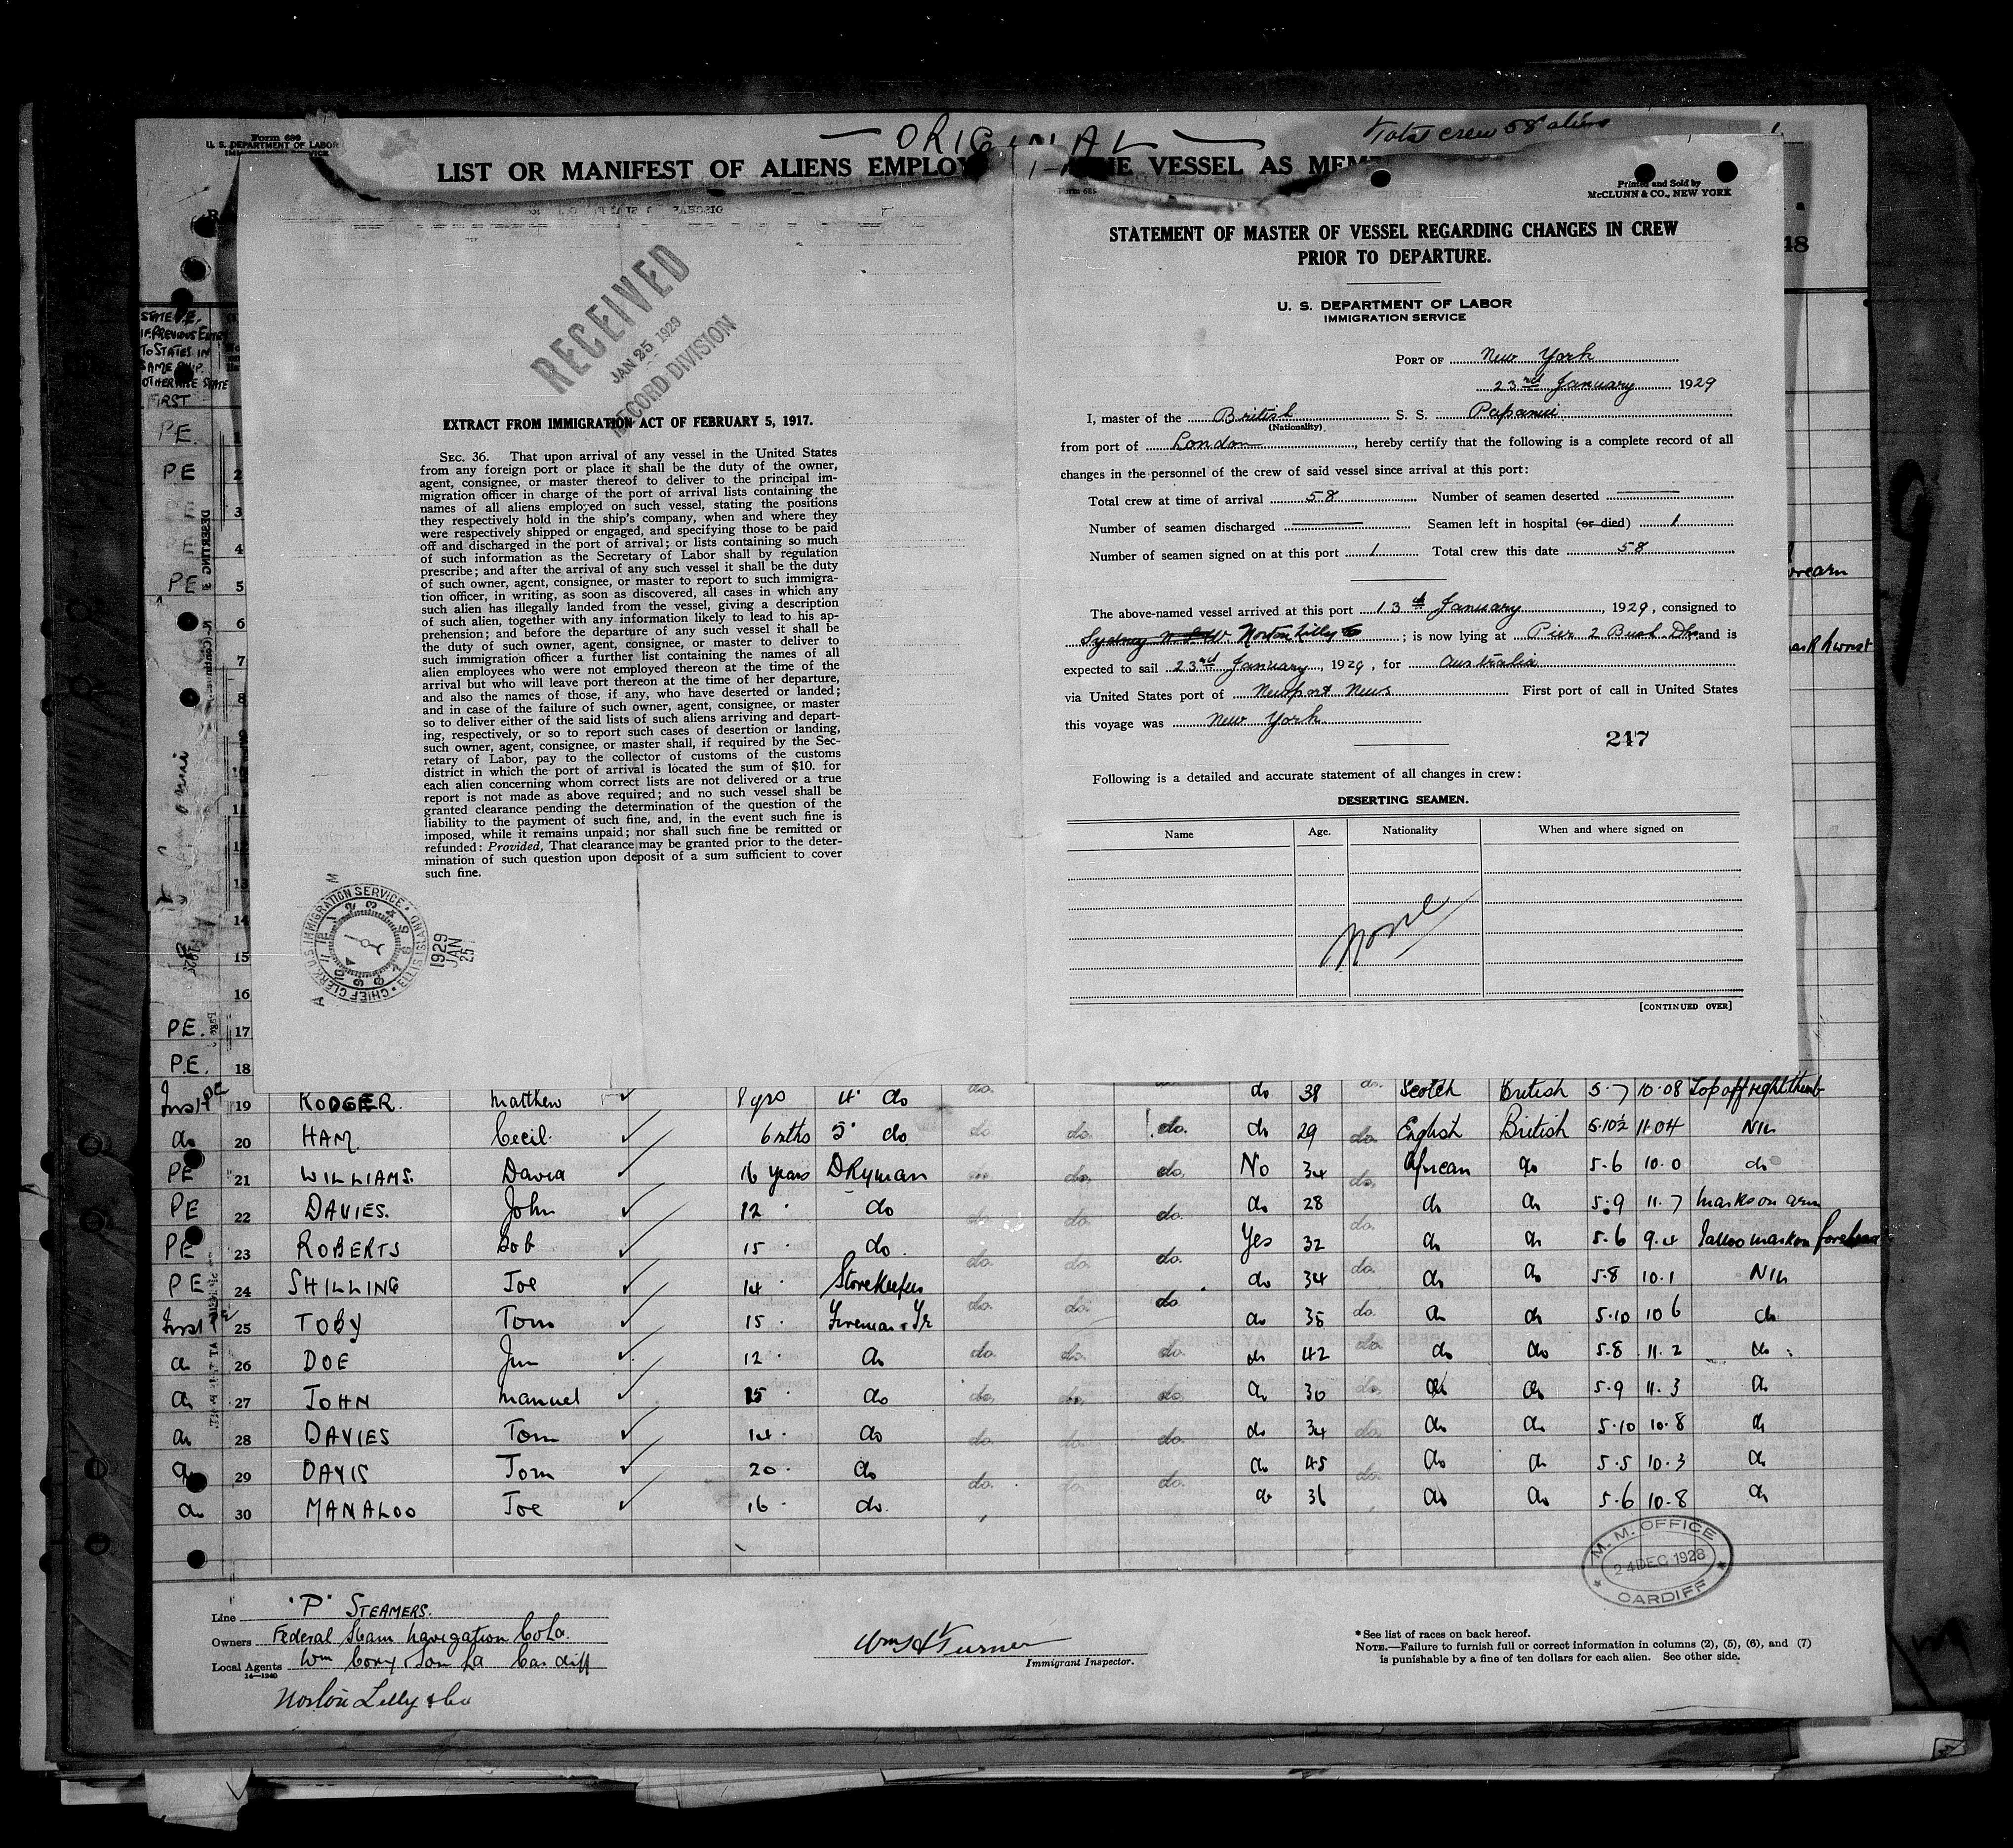 Form 680
U. S. DEPARTMENT OF LABOR
— ORIGINAL —
Total crew 58 aliens
LIST OR MANIFEST OF ALIENS EMPLO
THE VESSEL AS MEM
Form 685
Printed and Sold by
McCLUNN & CO., NEW YORK
STATEMENT OF MASTER OF VESSEL REGARDING CHANGES IN CREW
PRIOR TO DEPARTURE.
U. S. DEPARTMENT OF LABOR
IMMIGRATION SERVICE
PORT OF New York
23rd January 1929
I, master of the British S. S. Papanui
(Nationality)
from port of London, hereby certify that the following is a complete record of all
changes in the personnel of the crew of said vessel since arrival at this port:
Total crew at time of arrival 58 Number of seamen deserted —
Number of seamen discharged — Seamen left in hospital (or died) 1
Number of seamen signed on at this port 1 Total crew this date 58
The above-named vessel arrived at this port 13th January, 1929, consigned to
Sydney N.S.W. Norton Lilly Co; is now lying at Pier 2 Bush Dks and is
expected to sail 23rd January, 1929, for Australia
via United States port of Newport News First port of call in United States
this voyage was New York
247
Following is a detailed and accurate statement of all changes in crew:
DESERTING SEAMEN.
Name Age. Nationality When and where signed on
None
[CONTINUED OVER]
RECEIVED
JAN 25 1929
RECORD DIVISION
EXTRACT FROM IMMIGRATION ACT OF FEBRUARY 5, 1917.
SEC. 36. That upon arrival of any vessel in the United States
from any foreign port or place it shall be the duty of the owner,
agent, consignee, or master thereof to deliver to the principal im-
migration officer in charge of the port of arrival lists containing the
names of all aliens employed on such vessel, stating the positions
they respectively hold in the ship's company, when and where they
were respectively shipped or engaged, and specifying those to be paid
off and discharged in the port of arrival; or lists containing so much
of such information as the Secretary of Labor shall by regulation
prescribe; and after the arrival of any such vessel it shall be the duty
of such owner, agent, consignee, or master to report to such immigra-
tion officer, in writing, as soon as discovered, all cases in which any
such alien has illegally landed from the vessel, giving a description
of such alien, together with any information likely to lead to his ap-
prehension; and before the departure of any such vessel it shall be
the duty of such owner, agent, consignee, or master to deliver to
such immigration officer a further list containing the names of all
alien employees who were not employed thereon at the time of the
arrival but who will leave port thereon at the time of her departure,
and also the names of those, if any, who have deserted or landed;
and in case of the failure of such owner, agent, consignee, or master
so to deliver either of the said lists of such aliens arriving and depart-
ing, respectively, or so to report such cases of desertion or landing,
such owner, agent, consignee, or master shall, if required by the Sec-
retary of Labor, pay to the collector of customs of the customs
district in which the port of arrival is located the sum of $10. for
each alien concerning whom correct lists are not delivered or a true
report is not made as above required; and no such vessel shall be
granted clearance pending the determination of the question of the
liability to the payment of such fine, and, in the event such fine is
imposed, while it remains unpaid; nor shall such fine be remitted or
refunded: Provided, That clearance may be granted prior to the deter-
mination of such question upon deposit of a sum sufficient to cover
such fine.
CHIEF CLERK U.S. IMMIGRATION SERVICE ELLIS ISLAND
1929 JAN 25
STATE P.E.
IF PREVIOUS ENTRY
TO STATES IN
SAME SHIP
OTHERWISE STATE
FIRST
PE. 1
PE 2
3
4
PE 5
6
7
8
11
13
14
15
16
PE. 17
P.E. 18
First PE 19 RODGER. Matthew 8 yrs 4" do do. do 38 do. Scotch British 5.7 10.08 Top off right thumb
do 20 HAM Cecil 6 mths 5" do do. do. do. do 29 do. English British 5.10½ 11.04 Nil
PE 21 WILLIAMS. David 16 years DKyman do. do. No 34 do. African do 5.6 10.0 do
PE 22 DAVIES. John 12 " do do. do. do. do 28 do. do do 5.9 11.7 marks on arm
PE 23 ROBERTS Bob 15 " do. do. do. do. Yes 32 do. do do 5.6 9.4 Tattoo mark on forearm
PE 24 SHILLING Joe 14 " Storekeeper do. do. do. do 34 do. do do 5.8 10.1 Nil
First PE 25 TOBY Tom 15 " Fireman & Tr do. do. do do 35 do. do do 5.10 10 6 do
do 26 DOE Jim 12 " do do. do. do. do 42 do. do do 5.8 11.2 do
do 27 JOHN Manuel 15 " do do. do. do. do 30 do. do do 5.9 11.3 do
do 28 DAVIES Tom 14 " do do. do. do. do 34 do. do do 5.10 10.8 do
do 29 DAVIS Tom 20 " do do. do. do. do 45 do. do do 5.5 10.3 do
do 30 MANALOO Joe 16 " do. do 36 do do 5.6 10.8 do
M. M. OFFICE
24 DEC 1928
CARDIFF
Line "P" STEAMERS.
Owners Federal Steam Navigation Co Ld.
Local Agents Wm Cory & Son Ld Cardiff
14—1240
Norton Lilly & Co
Wm H Turner
Immigrant Inspector.
* See list of races on back hereof.
NOTE.—Failure to furnish full or correct information in columns (2), (5), (6), and (7)
is punishable by a fine of ten dollars for each alien. See other side.